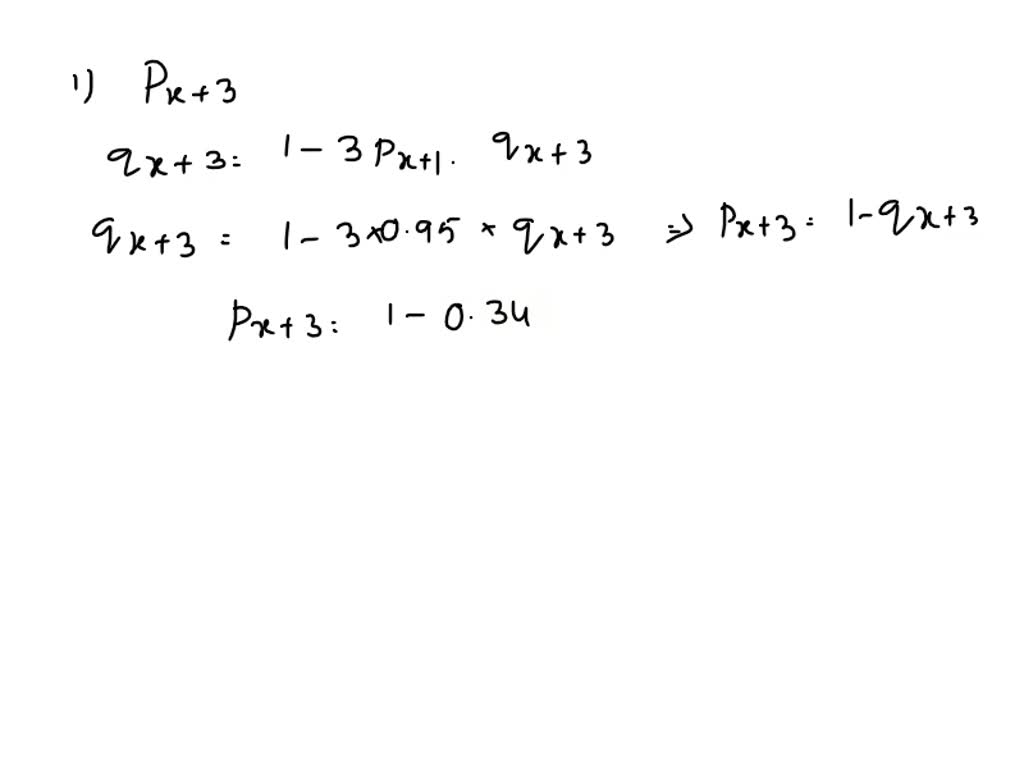 1) Px+3
qx+3 = 1 - 3 Px+1 . qx+3
qx+3 = 1 - 3×0.95 × qx+3 ⇒ Px+3 = 1 - qx+3
Px+3 = 1 - 0.34